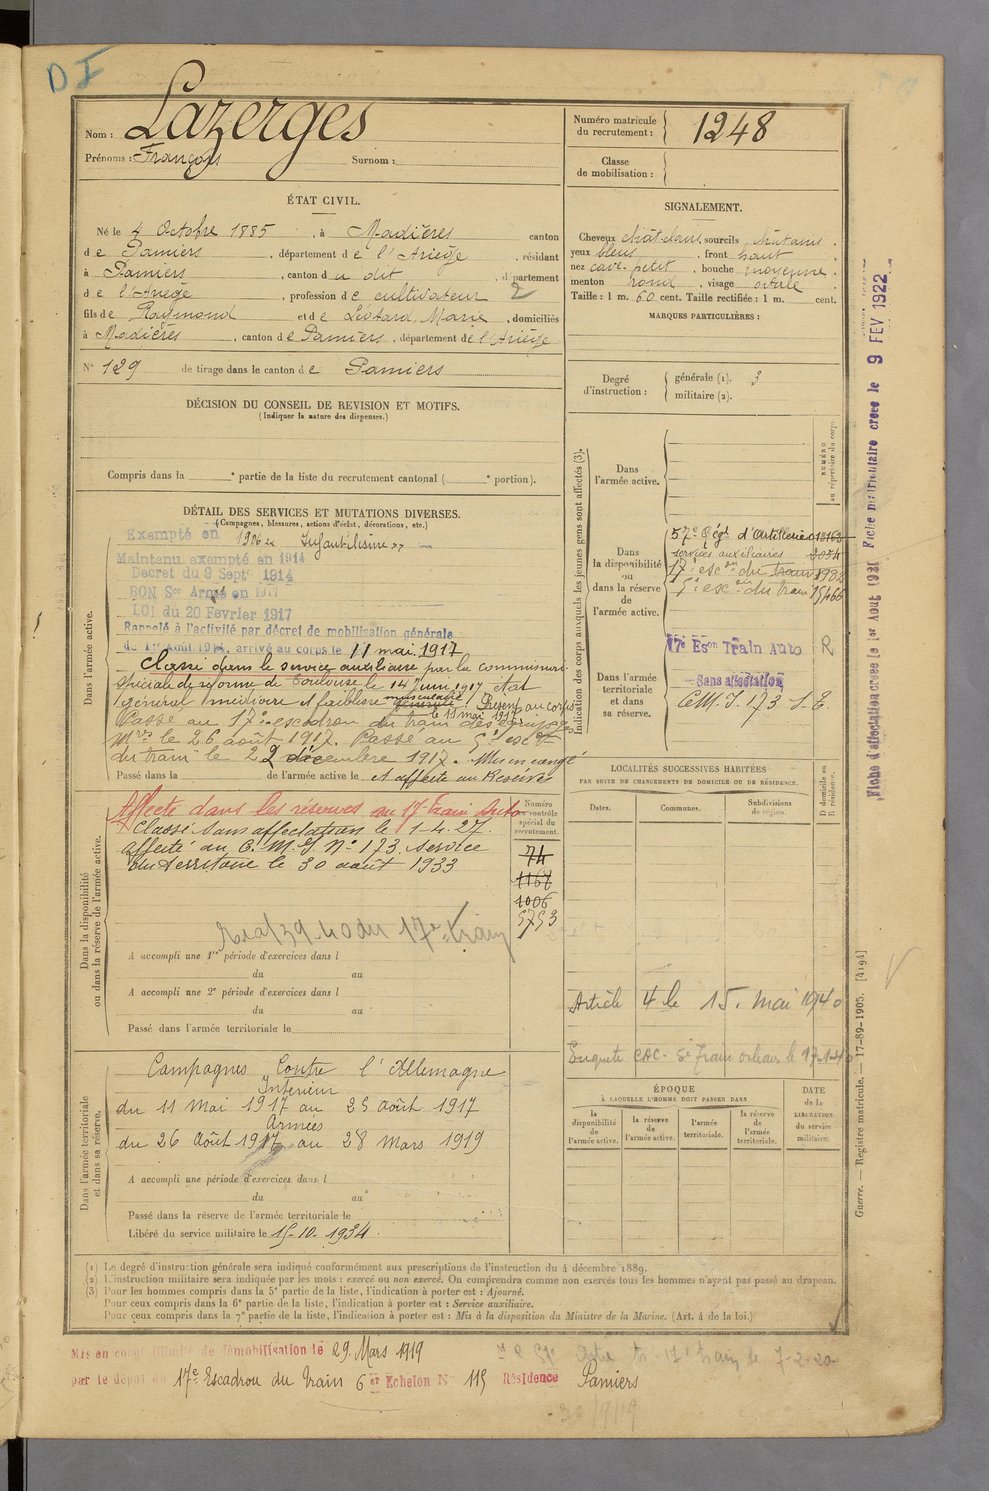 D I
Nom : Lazerges
Prénoms : François Surnom :
Numéro matricule du recrutement : 1248
Classe de mobilisation :
ÉTAT CIVIL.
Né le 4 Octobre 1885, à Madières canton
de Pamiers, département de l'Ariège, résidant
à Pamiers, canton du dit, département
de l'Ariège, profession de cultivateur 2
fils de Raymond et de Léotard, Marie, domiciliés
à Madières, canton de Pamiers, département de l'Ariège
N° 129 de tirage dans le canton de Pamiers
SIGNALEMENT.
Cheveux chât-clairs, sourcils châtains.
yeux bleus, front haut
nez cave. petit, bouche moyenne.
menton rond, visage ovale.
Taille : 1 m. 60 cent. Taille rectifiée : 1 m. cent.
MARQUES PARTICULIÈRES :
Degré d'instruction : générale (1). 3
militaire (2).
DÉCISION DU CONSEIL DE REVISION ET MOTIFS.
(Indiquer la nature des dispenses.)
Compris dans la e partie de la liste du recrutement cantonal ( e portion).
DÉTAIL DES SERVICES ET MUTATIONS DIVERSES.
(Campagnes, blessures, actions d'éclat, décorations, etc.)
Dans l'armée active.
Exempté en 1906 Infantilisme
Maintenu exempté en 1914
Décret du 9 Sept. 1914
BON Sce Armé en 1917
LOI du 20 Février 1917
Rappelé à l'activité par décret de mobilisation générale
du 1er Août 1914, arrivé au corps le 11 mai 1917
Classé dans le service auxiliaire par la commission
spéciale de réforme de Toulouse le 14 Juin 1917 état
général médiocre et faiblesse musculaire générale. Présent au corps
le 11 mai 1917.
Passé au 17e escadron du train des équipages
mres le 26 août 1917. Passé au 5e escon
du train le 22 décembre 1917. Mis en congé
Passé dans la de l'armée active le et affecté au Réserves
Dans la disponibilité ou dans la réserve de l'armée active.
Affecté dans les réserves au 17e Train Auto
Classé Sans affectation le 1-4-27.
affecté au C.M.I. N° 173. Service
du Territoire le 30 août 1933
39-40 du 17e Train
A accompli une 1re période d'exercices dans l
du au
A accompli une 2e période d'exercices dans l
du au
Passé dans l'armée territoriale le
Numéro au contrôle spécial du recrutement.
74
1168
1006
5753
Indication des corps auxquels les jeunes gens sont affectés (3).
NUMÉRO au répertoire du corps.
Dans l'armée active.
Dans la disponibilité ou dans la réserve de l'armée active.
57e Régt d'Artillerie 013163
services auxiliaires 3054
17e escon du train 1982
5e escon du train 15466
Dans l'armée territoriale et dans sa réserve.
17e Eson Train Auto R
Sans affectation
C.M.I. 173 S.T.
LOCALITÉS SUCCESSIVES HABITÉES
PAR SUITE DE CHANGEMENTS DE DOMICILE OU DE RÉSIDENCE.
Dates. Communes. Subdivisions de région. D domicile ou R résidence.
Article 4 le 15. mai 1940
Enquête CAC. 5e Train Orléans le 17-1-40
ÉPOQUE
À LAQUELLE L'HOMME DOIT PASSER DANS
la disponibilité de l'armée active. la réserve de l'armée active. l'armée territoriale. la réserve de l'armée territoriale.
DATE de la LIBÉRATION du service militaire.
Dans l'armée territoriale et dans sa réserve.
Campagnes Contre l'Allemagne
Intérieur
du 11 Mai 1917 au 25 Août 1917
Armées
du 26 Août 1917 au 28 Mars 1919
A accompli une période d'exercices dans l
du au
Passé dans la réserve de l'armée territoriale le
Libéré du service militaire le 15-10-1934.
(1) Le degré d'instruction générale sera indiqué conformément aux prescriptions de l'instruction du 4 décembre 1889.
(2) L'instruction militaire sera indiquée par les mots : exercé ou non exercé. On comprendra comme non exercés tous les hommes n'ayant pas passé au drapeau.
(3) Pour les hommes compris dans la 5e partie de la liste, l'indication à porter est : Ajourné.
Pour ceux compris dans la 6e partie de la liste, l'indication à porter est : Service auxiliaire.
Pour ceux compris dans la 7e partie de la liste, l'indication à porter est : Mis à la disposition du Ministre de la Marine. (Art. 4 de la loi.)
Mis en congé illimité de démobilisation le 29 Mars 1919
par le dépôt du 17e Escadron du Train 6er Echelon N° 115 Résidence Pamiers
17e train le 7-2-20
30/9/19
Fiche d'affectation créée le 1er Aout 1921 Fiche matriculaire créée le 9 FEV 1922
Guerre. — Registre matricule. — 17-89-1905. [4194]